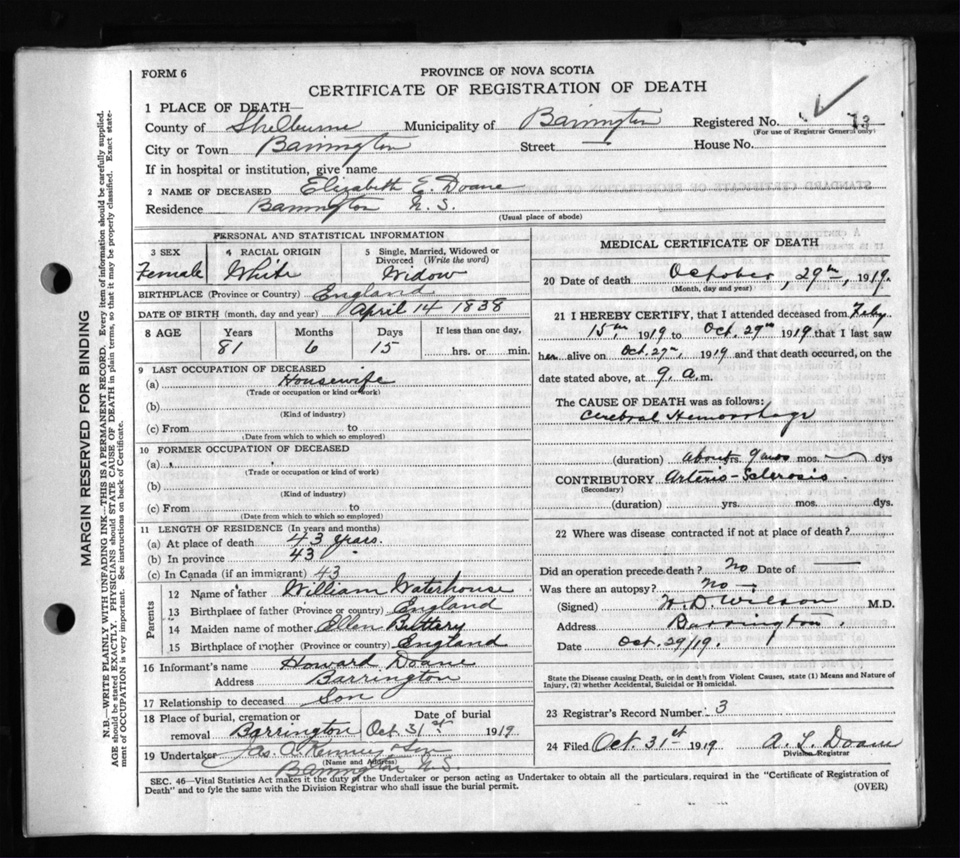 FORM 6
PROVINCE OF NOVA SCOTIA
CERTIFICATE OF REGISTRATION OF DEATH
1 PLACE OF DEATH—
County of Shelburne Municipality of Barrington Registered No. 73
(For use of Registrar General only)
City or Town Barrington Street — House No.
If in hospital or institution, give name
2 NAME OF DECEASED Elizabeth E. Doane
Residence Barrington N. S.
(Usual place of abode)
PERSONAL AND STATISTICAL INFORMATION
3 SEX Female
4 RACIAL ORIGIN White
5 Single, Married, Widowed or Divorced (Write the word) Widow
BIRTHPLACE (Province or Country) England
DATE OF BIRTH (month, day and year) April 14 1838
8 AGE Years Months Days If less than one day,
81 6 15 hrs. or min.
9 LAST OCCUPATION OF DECEASED
(a) Housewife
(Trade or occupation or kind of work)
(b)
(Kind of industry)
(c) From to
(Date from which to which so employed)
10 FORMER OCCUPATION OF DECEASED
(a)
(Trade or occupation or kind of work)
(b)
(Kind of industry)
(c) From to
(Date from which to which so employed)
11 LENGTH OF RESIDENCE (In years and months)
(a) At place of death 43 years.
(b) In province 43
(c) In Canada (if an immigrant) 43
Parents
12 Name of father William Waterhouse
13 Birthplace of father (Province or Country) England
14 Maiden name of mother Ellen Buttery
15 Birthplace of mother (Province or country) England
16 Informant's name Howard Doane
Address Barrington
17 Relationship to deceased Son
18 Place of burial, cremation or removal Barrington Date of burial Oct 31st 1919
19 Undertaker Jas. A. Kenney & Son
(Name and Address)
Barrington N. S.
MEDICAL CERTIFICATE OF DEATH
20 Date of death October, 29th, 1919.
(Month, day and year)
21 I HEREBY CERTIFY, that I attended deceased from Feby
15th 1919 to Oct. 29th 1919 that I last saw
her alive on Oct. 27th, 1919 and that death occurred, on the
date stated above, at 9. a.m.
The CAUSE OF DEATH was as follows:
Cerebral Hemorrhage
(duration) about yrs. 9 mos mos. dys
CONTRIBUTORY Arterio-Sclerosis
(Secondary)
(duration) yrs. mos. dys.
22 Where was disease contracted if not at place of death?
Did an operation precede death? No Date of —
Was there an autopsy? No —
(Signed) W. D. Wilson M.D.
Address Barrington.
Date Oct. 29/19.
State the Disease causing Death, or in death from Violent Causes, state (1) Means and Nature of
Injury, (2) whether Accidental, Suicidal or Homicidal.
23 Registrar's Record Number 3
24 Filed Oct. 31st 1919 A. L. Doane
Division Registrar
SEC. 46—Vital Statistics Act makes it the duty of the Undertaker or person acting as Undertaker to obtain all the particulars, required in the "Certificate of Registration of
Death" and to fyle the same with the Division Registrar who shall issue the burial permit. (OVER)
MARGIN RESERVED FOR BINDING
N.B.—WRITE PLAINLY WITH UNFADING INK—THIS IS A PERMANENT RECORD. Every item of information should be carefully supplied.
AGE should be stated EXACTLY. PHYSICIANS should STATE CAUSE OF DEATH in plain terms, so that it may be properly classified. Exact state-
ment of OCCUPATION is very important. See instructions on back of Certificate.